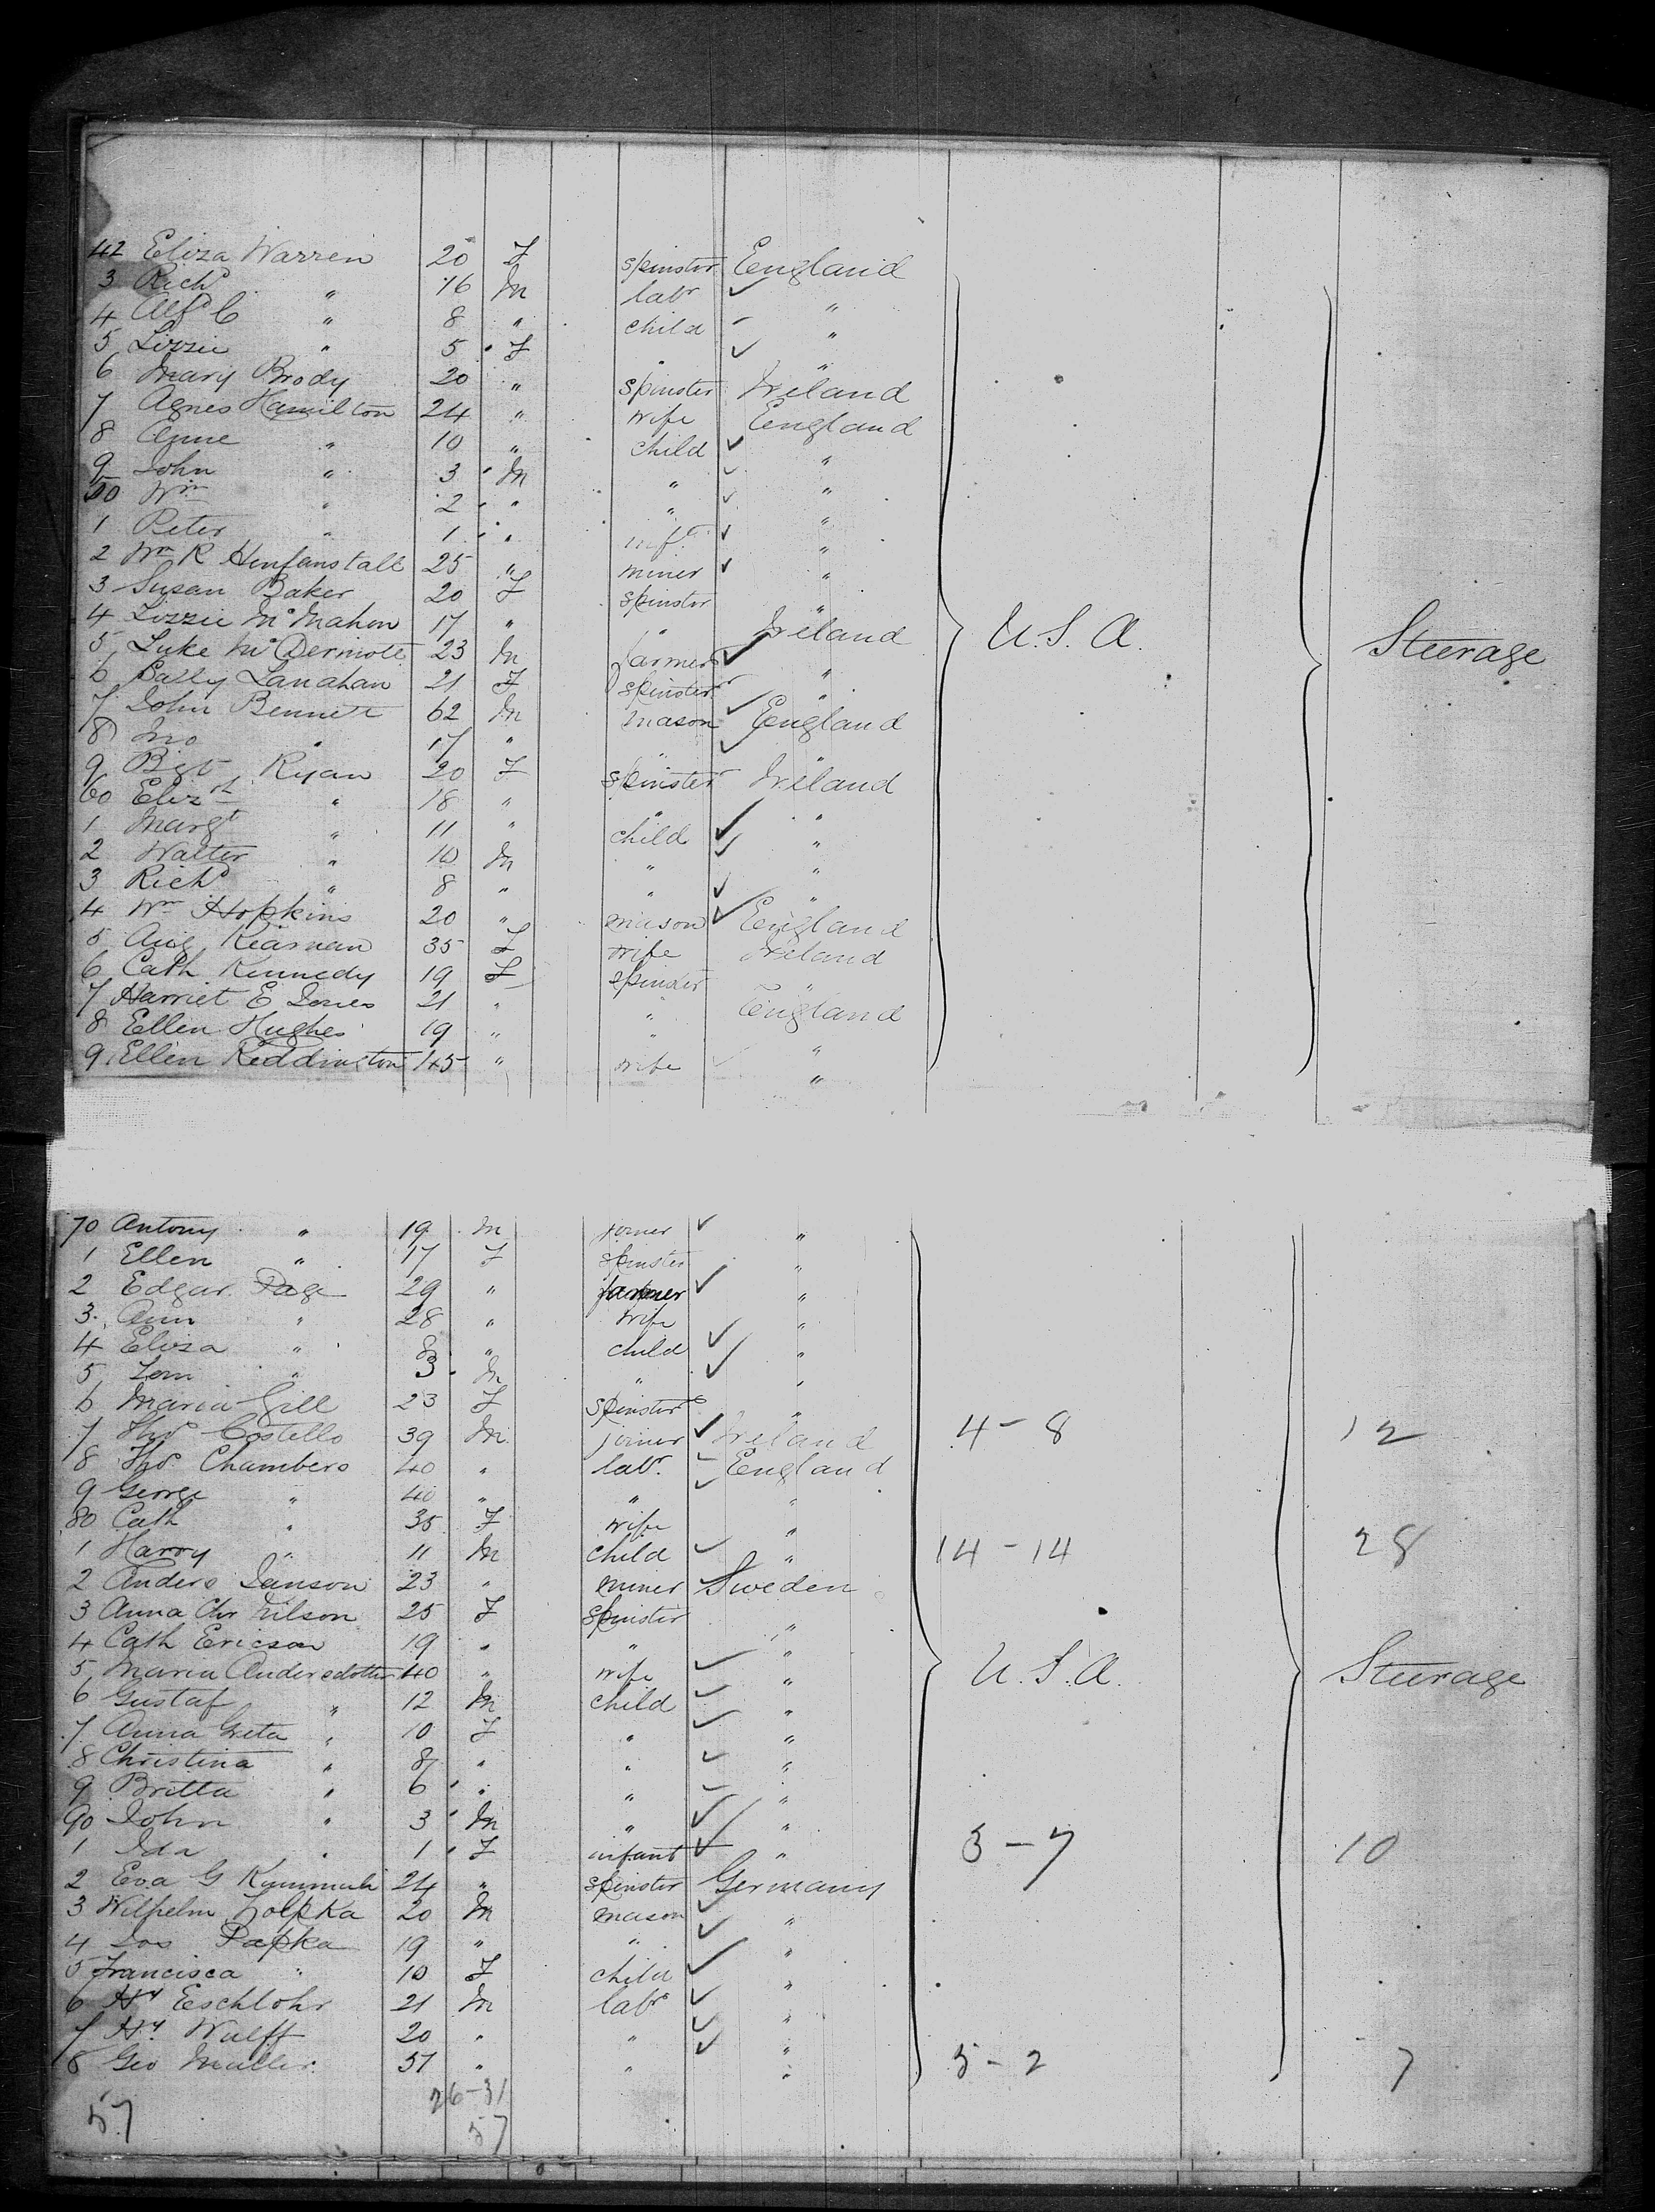 42 Eliza Warren 20 F spinster England
3 Richd " 16 M labr "
4 Alfd C " 8 " child "
5 Lizzie " 5 F " "
6 Mary Brody 20 " spinster Ireland
7 Agnes Hamilton 24 " wife England
8 Anne " 10 " child "
9 John " 3 M " "
50 Wm " 2 " " "
1 Peter " 1 " inft "
2 Wm R Hunfanstall 25 " miner "
3 Susan Baker 20 F spinster "
4 Lizzie McMahon 17 " " Ireland U.S.A. Steerage
5 Luke McDermott 23 M farmer "
6 Cally Lanahan 21 F spinster "
7 John Bennett 62 M mason England
8 Jno " 17 " " "
9 Bigt Ryan 20 F spinster Ireland
60 Elizth " 18 " " "
1 Margt " 11 " child "
2 Walter " 10 M " "
3 Richd " 8 " " "
4 Wm Hopkins 20 " mason England
5 Aug Kiasnan 35 F wife Ireland
6 Cath Kennedy 19 F spinster "
7 Harriet E Jones 21 " " England
8 Ellen Hughes 19 " " "
9 Ellen Reddington 45 " wife "
70 Antony " 19 M joiner "
1 Ellen " 17 F spinster "
2 Edgar Page 29 " farmer "
3 Ann " 28 " wife "
4 Eliza " 8 " child "
5 Tom " 3 M " "
6 Maria Gill 23 F spinster "
7 Thos Costello 39 M joiner Ireland 4-8 12
8 Thos Chambers 40 " labr England
9 George " 40 " " "
80 Cath " 35 F wife "
1 Harry " 11 M child " 14-14 28
2 Anders Janson 23 " miner Sweden
3 Anna Chr Nilson 25 F spinster "
4 Cath Ericson 19 " " "
5 Maria Andersdotter 40 " wife " U.S.A. Steerage
6 Gustaf " 12 M child "
7 Anna Greta " 10 F " "
8 Christina " 8 " " "
9 Britta " 6 " " "
90 John " 3 M " "
1 Ida " 1 F infant " 3-7 10
2 Eva G 24 " spinster Germany
3 Wilhelm Holpka 20 M mason "
4 Jos Papka 19 " " "
5 Francisca " 10 F child "
6 Hy Eschlohr 21 M labr "
7 Hy Wulff 20 " " "
8 Geo Muller 51 " " " 5-2 7
57 26-31
57